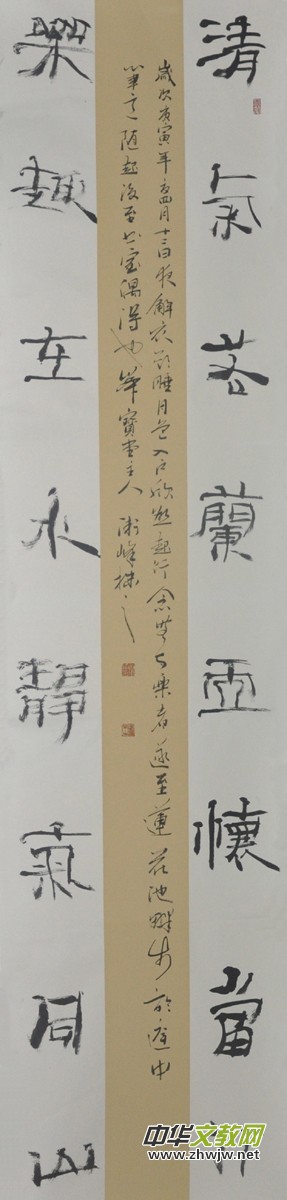 清氣若蘭虛懷當竹
歲次庚寅年四月十三日夜解衣欲睡月色入戶欣然起行念無与樂者遂至蓮花池畔步於庭中
筆意隨起後至書室偶得也 寶堂主人
樂趣在水靜氣同山
中华文教网
www.zhwjw.net